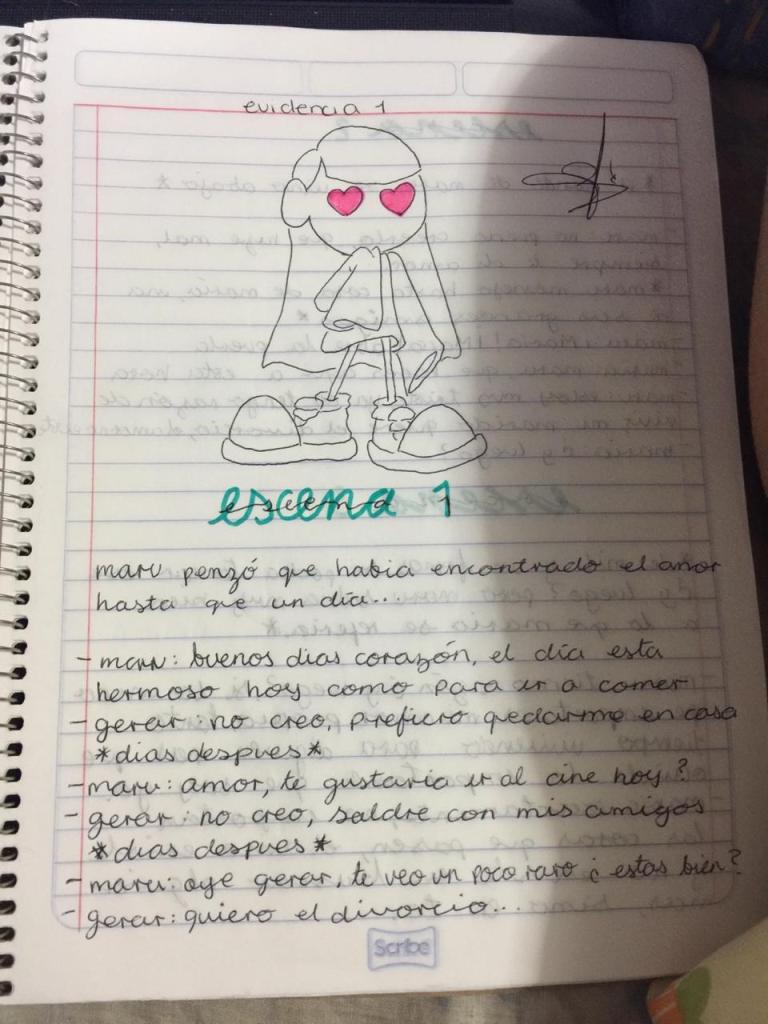 evidencia 1
escena 1
maru penzó que habia encontrado el amor
hasta que un día...
- maru: buenos dias corazón, el día esta
hermoso hoy como para ir a comer
- gerar: no creo, prefiero quedarme en casa
*dias despues*
- maru: amor, te gustaria ir al cine hoy?
- gerar: no creo, saldre con mis amigos
*dias despues*
- maru: oye gerar, te veo un poco raro ¿estas bien?
- gerar: quiero el divorcio...
Scribe